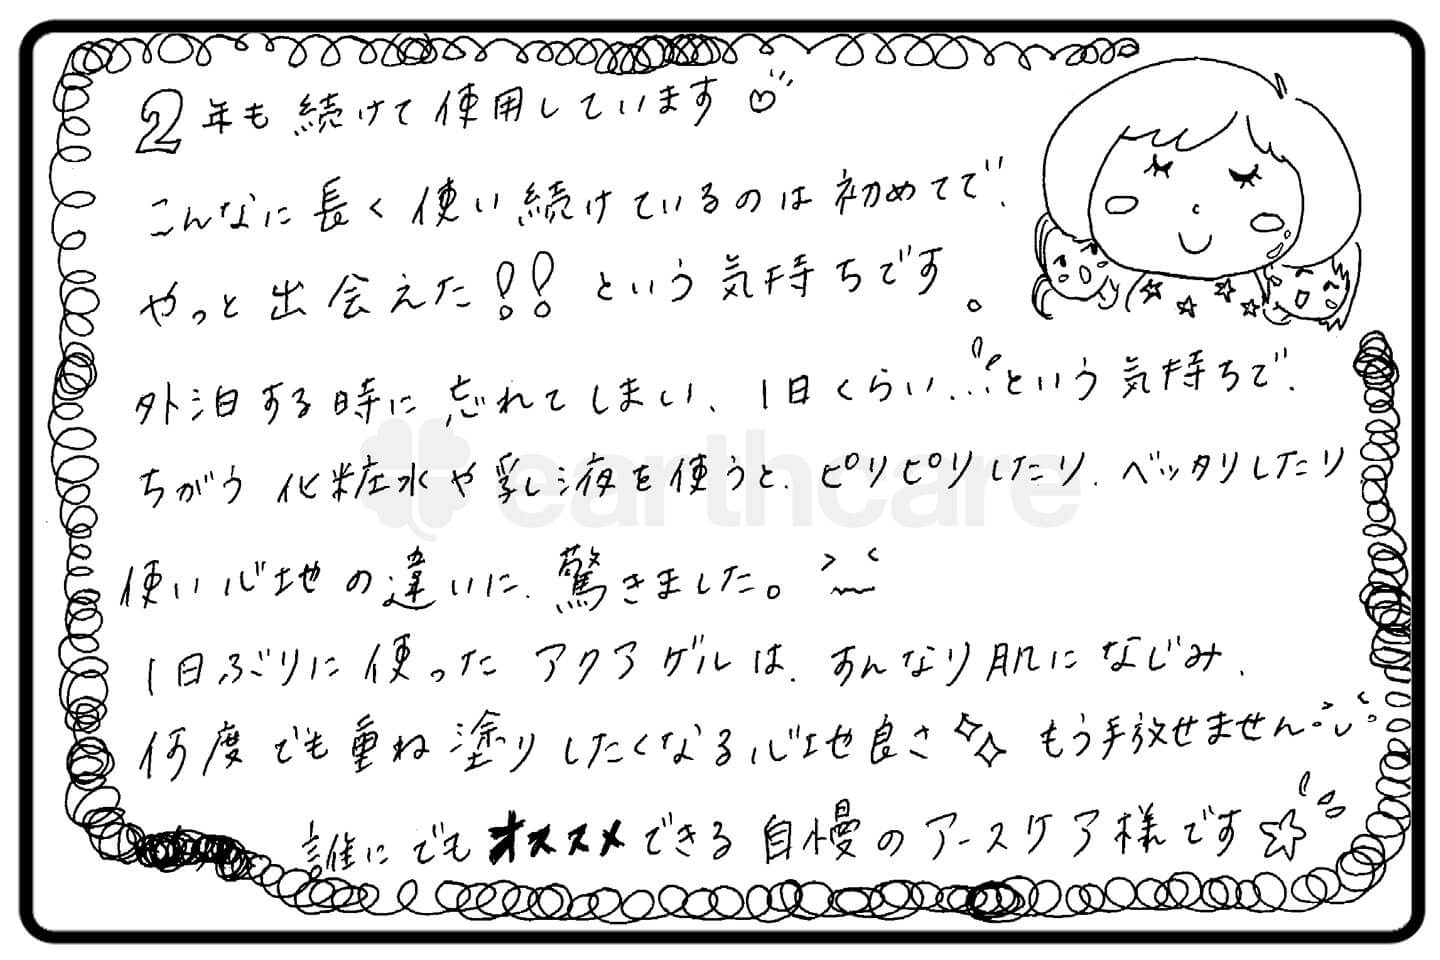 2年も続けて使用しています♡
こんなに長く使い続けているのは初めてで、
やっと出会えた!! という気持ちです。
外泊する時に忘れてしまい、1日くらい...という気持ちで、
ちがう化粧水や乳液を使うと、ピリピリしたり、ベッタリしたり
earthcare
使い心地の違いに、驚きました。
1日ぶりに使ったアクアゲルは、すんなり肌になじみ、
何度でも重ね塗りしたくなる心地良さ もう手放せません
誰にでもオススメできる自慢のアースケア様です☆